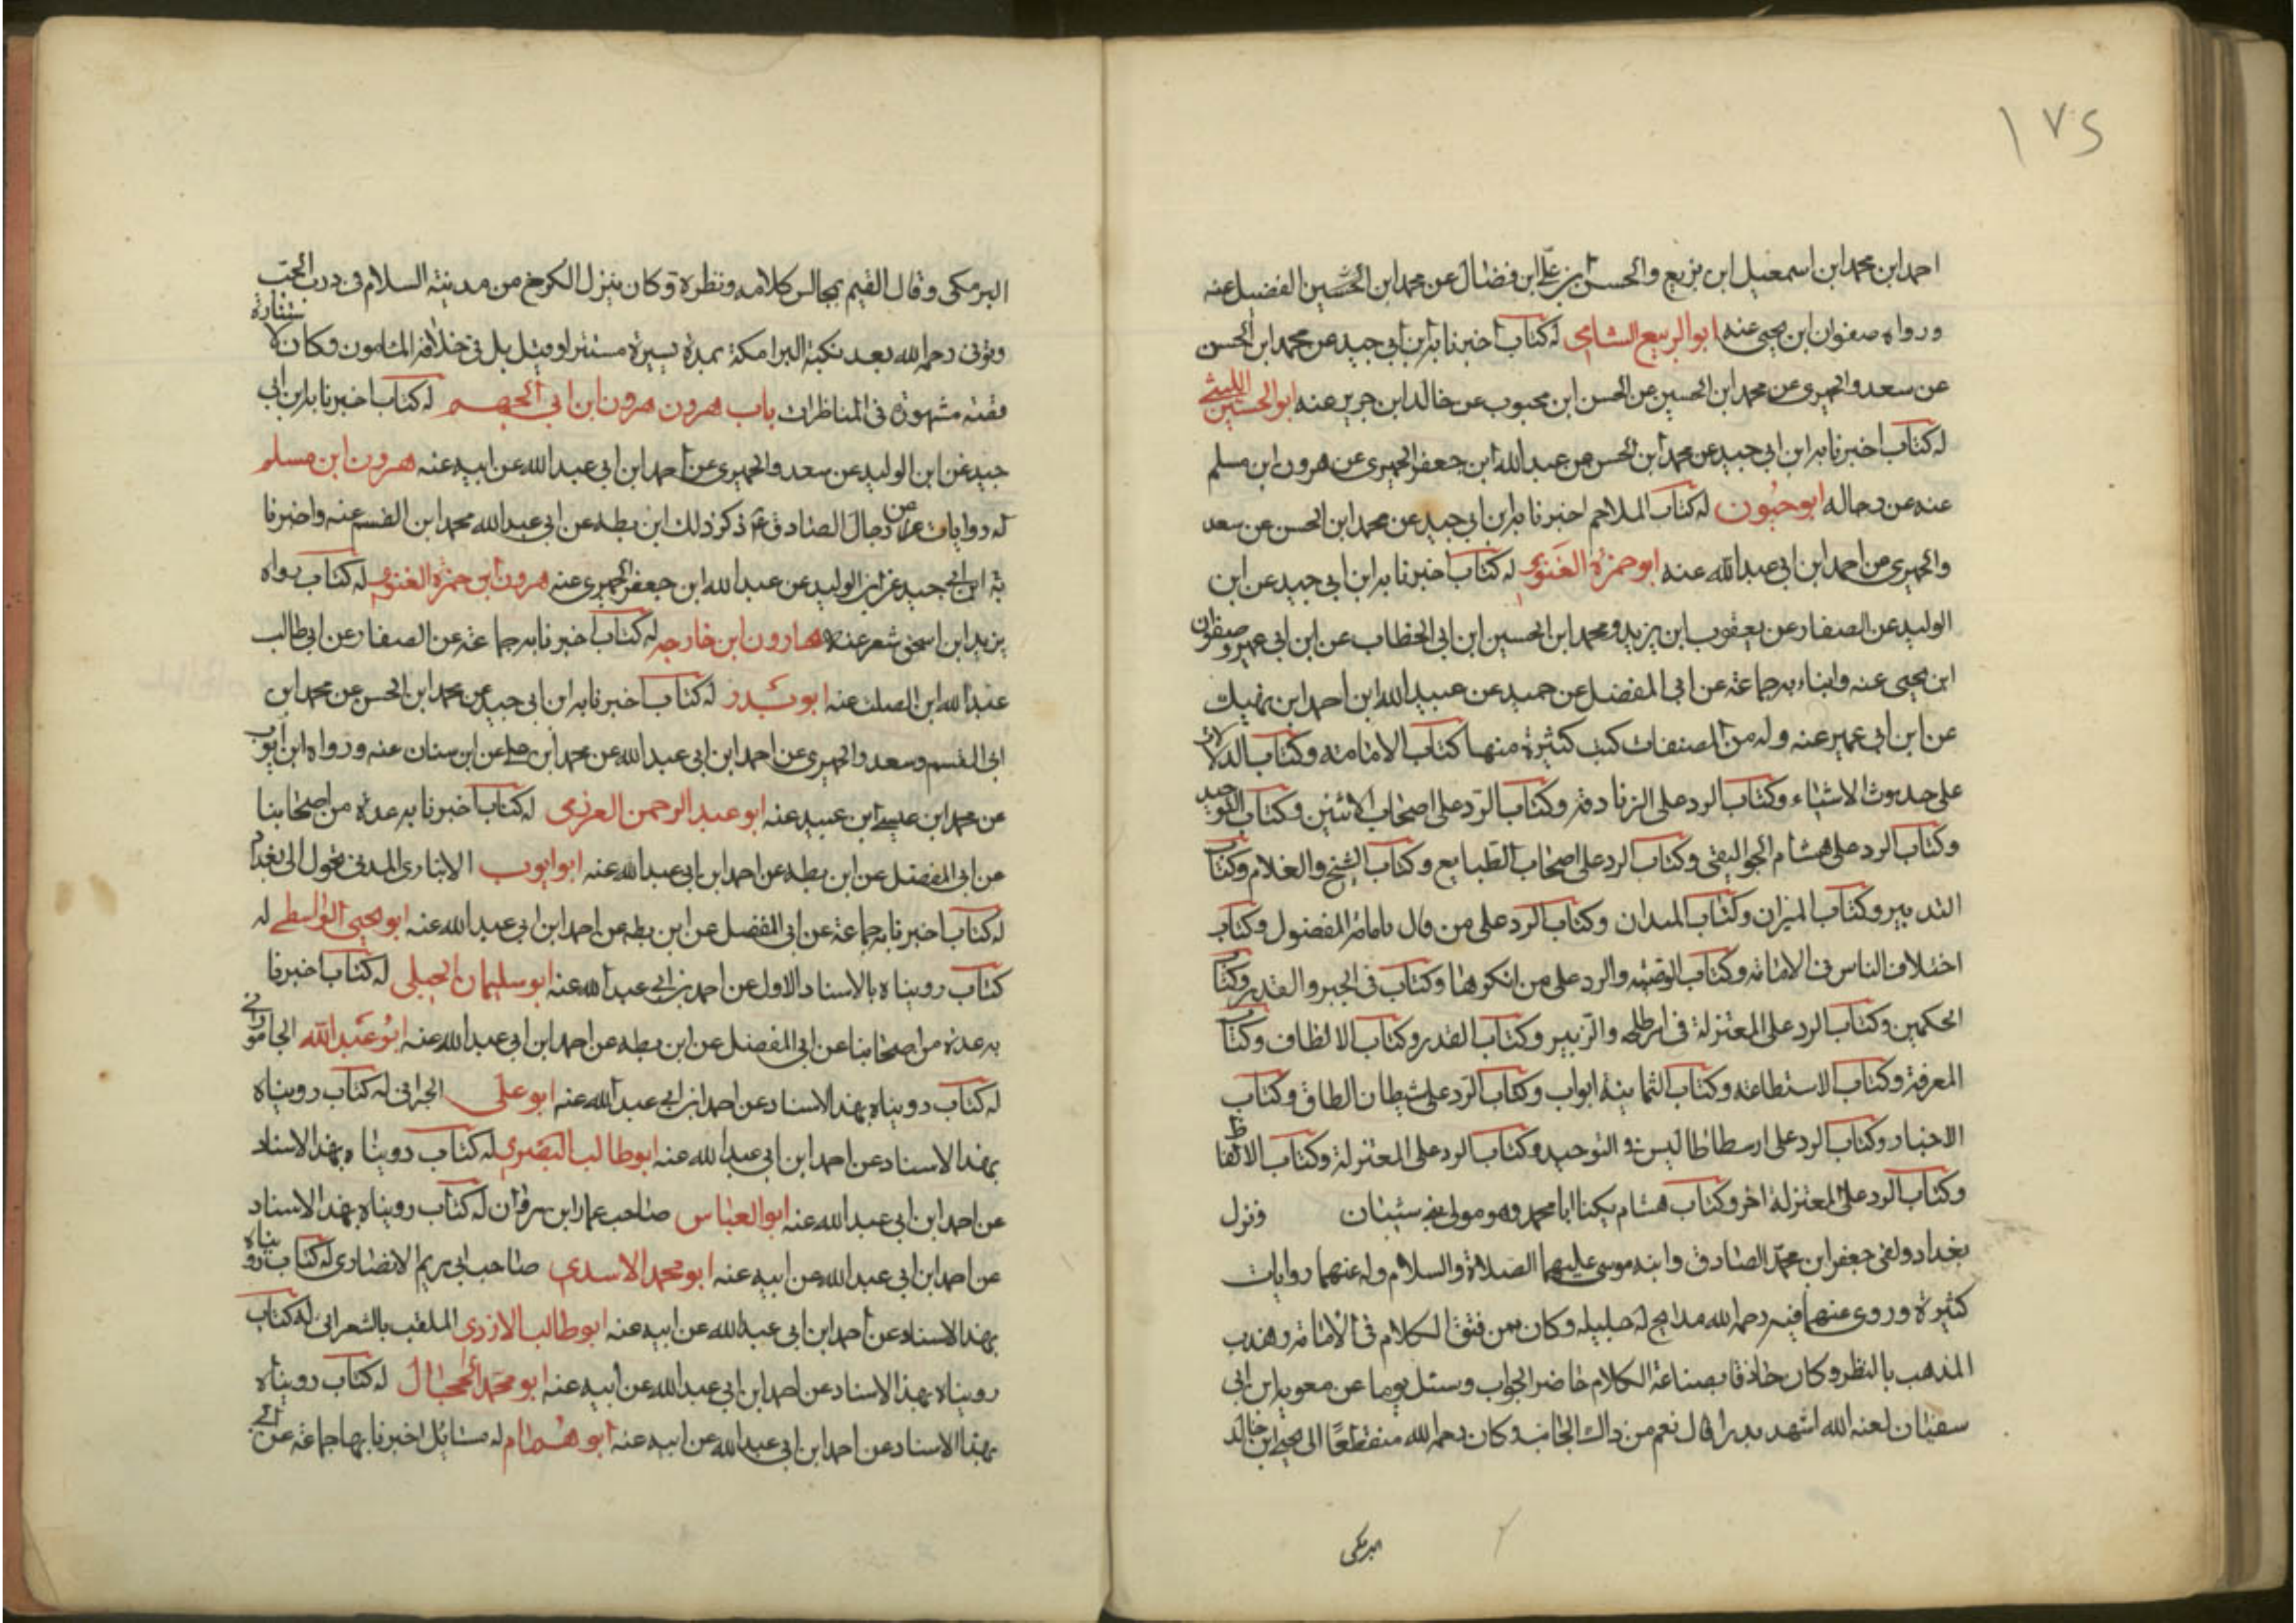 ١٧٤
احمد ابن محمد ابن اسمعيل ابن بزيع والحسن ابن علي ابن فضال عن محمد ابن الحسين الفضيل عنه
ورواه صفوان ابن يحيى عنه ابو الربيع الشامي له كتاب اخبرنا به ابن ابي جيد عن محمد ابن الحسن
عن سعد والحميرى عن محمد ابن الحسين عن الحسن ابن محبوب عن خالد ابن جرير عنه ابو الحسين الليثي
له كتاب اخبرنا به ابن ابى جيد عن محمد ابن الحسن عن عبد الله ابن جعفر الحميرى عن هرون ابن مسلم
عنه عن رجاله ابو حيون له كتاب الملاحم اخبرنا به ابن ابى جيد عن محمد ابن الحسن عن سعد
والحميرى عن احمد ابن ابى عبد الله عنه ابو حمزة الغنوى له كتاب اخبرنا به ابن ابى جيد عن ابن
الوليد عن الصفار عن يعقوب ابن يزيد ومحمد ابن الحسين ابن ابى الخطاب عن ابن ابى عمير وصفوان
ابن يحيى عنه وانباء به جماعة عن ابى المفضل عن حميد عن عبيد الله ابن احمد ابن نهيك
عن ابن ابى عمير عنه وله من المصنفات كتب كثيرة منها كتاب الامامة وكتاب الدلالات
على حدوث الاشياء وكتاب الرد على الزنادقة وكتاب الرد على اصحاب الاثنين وكتاب التوحيد
وكتاب الرد على هشام الجواليقى وكتاب الرد على اصحاب الطبايع وكتاب الشيخ والغلام وكتاب
التدبير وكتاب الميزان وكتاب الميدان وكتاب الرد على من قال بامامة المفضول وكتاب
اختلاف الناس فى الامامة وكتاب الوصية والرد على من انكرها وكتاب فى الجبر والقدر وكتاب
الحكمين وكتاب الرد على المعتزلة فى امر طلحه والزبير وكتاب القدر وكتاب الالطاف وكتاب
المعرفة وكتاب الاستطاعة وكتاب الثمانية ابواب وكتاب الرد على شيطان الطاق وكتاب
الاخبار وكتاب الرد على ارسطاطاليس فى التوحيد وكتاب الرد على المعتزلة وكتاب الالفاظ
وكتاب الرد على المعتزلة اخر وكتاب هشام يكنا ابا محمد وهو مولى بنى شيبان ونزل
بغداد ولقى جعفر ابن محمد الصادق وابنه موسى عليهما الصلاة والسلام وله عنهما روايات
كثيرة وروى عنهما فيه رحمه الله مدايح له جليله وكان ممن فتق الكلام فى الامامة وهذب
المذهب بالنظر وكان حاذقا بصناعة الكلام حاضر الجواب وسئل يوما عن معويه ابن ابى
سفيان لعنه الله اشهد بدرا قال نعم من ذاك الجانب وكان رحمه الله منقطعا الى يحيى ابن خالد
البرمكى
البرمكى وقال القيم بمجالس كلامه ونظره وكان ينزل الكرخ من مدينة السلام فى درب الجب
وتوفى رحمه الله بعد نكبة البرامكة بمدة يسيرة مستترا وقيل بل فى خلافة المامون وكان لاستتاره
قصة مشهورة فى المناظرات باب هرون هرون ابن ابى الجهم له كتاب اخبرنا به ابن ابى
جيد عن ابن الوليد عن سعد والحميرى عن احمد ابن ابى عبد الله عن ابيه عنه هرون ابن مسلم
له روايات عن رجال الصادق ع ذكر ذلك ابن بطه عن ابى عبد الله محمد ابن القسم عنه واخبرنا
به ابن ابى جيد عن ابن الوليد عن عبد الله ابن جعفر الحميرى عنه هرون ابن حمزة الغنوى له كتاب رواه
يزيد ابن اسحق شعر عنه هارون ابن خارجه له كتاب اخبرنا به جماعة عن الصفار عن ابى طالب
عبد الله ابن الصلت عنه ابو بدر له كتاب اخبرنا به ابن ابى جيد عن محمد ابن الحسن عن محمد ابن
ابى القسم وسعد والحميرى عن احمد ابن ابى عبد الله عن محمد ابن على عن ابن سنان عنه ورواه ابن ايوب
عن محمد ابن عيسى ابن عبيد عنه ابو عبد الرحمن العرزمى له كتاب اخبرنا به عدة من اصحابنا
عن ابى المفضل عن ابن بطه عن احمد ابن ابى عبد الله عنه ابو ايوب الانبارى المدنى تحول الى بغداد
له كتاب اخبرنا به جماعة عن ابى المفضل عن ابن بطه عن احمد ابن ابى عبد الله عنه ابو يحيى الواسطى له
كتاب رويناه بالاسناد الاول عن احمد بن ابى عبد الله عنه ابو سليمان الجبلى له كتاب اخبرنا
به عدة من اصحابنا عن ابى المفضل عن ابن بطه عن احمد ابن ابى عبد الله عنه ابو عبد الله الجامورانى
له كتاب رويناه بهذا الاسناد عن احمد ابن ابى عبد الله عنه ابو على الحرانى له كتاب رويناه
بهذا الاسناد عن احمد ابن ابى عبد الله عنه ابو طالب البصرى له كتاب رويناه بهذا الاسناد
عن احمد ابن ابى عبد الله عنه ابو العباس صاحب عمار ابن مروان له كتاب رويناه بهذا الاسناد
عن احمد ابن ابى عبد الله عن ابيه عنه ابو محمد الاسدى صاحب ابى مريم الانصارى له كتاب رويناه
بهذا الاسناد عن احمد ابن ابى عبد الله عن ابيه عنه ابو طالب الازدى الملقب بالشعرانى له كتاب
رويناه بهذا الاسناد عن احمد ابن ابى عبد الله عن ابيه عنه ابو محمد الحجال له كتاب رويناه
بهذا الاسناد عن احمد ابن ابى عبد الله عن ابيه عنه ابو همام له مسائل اخبرنا بها جماعة عن ابى